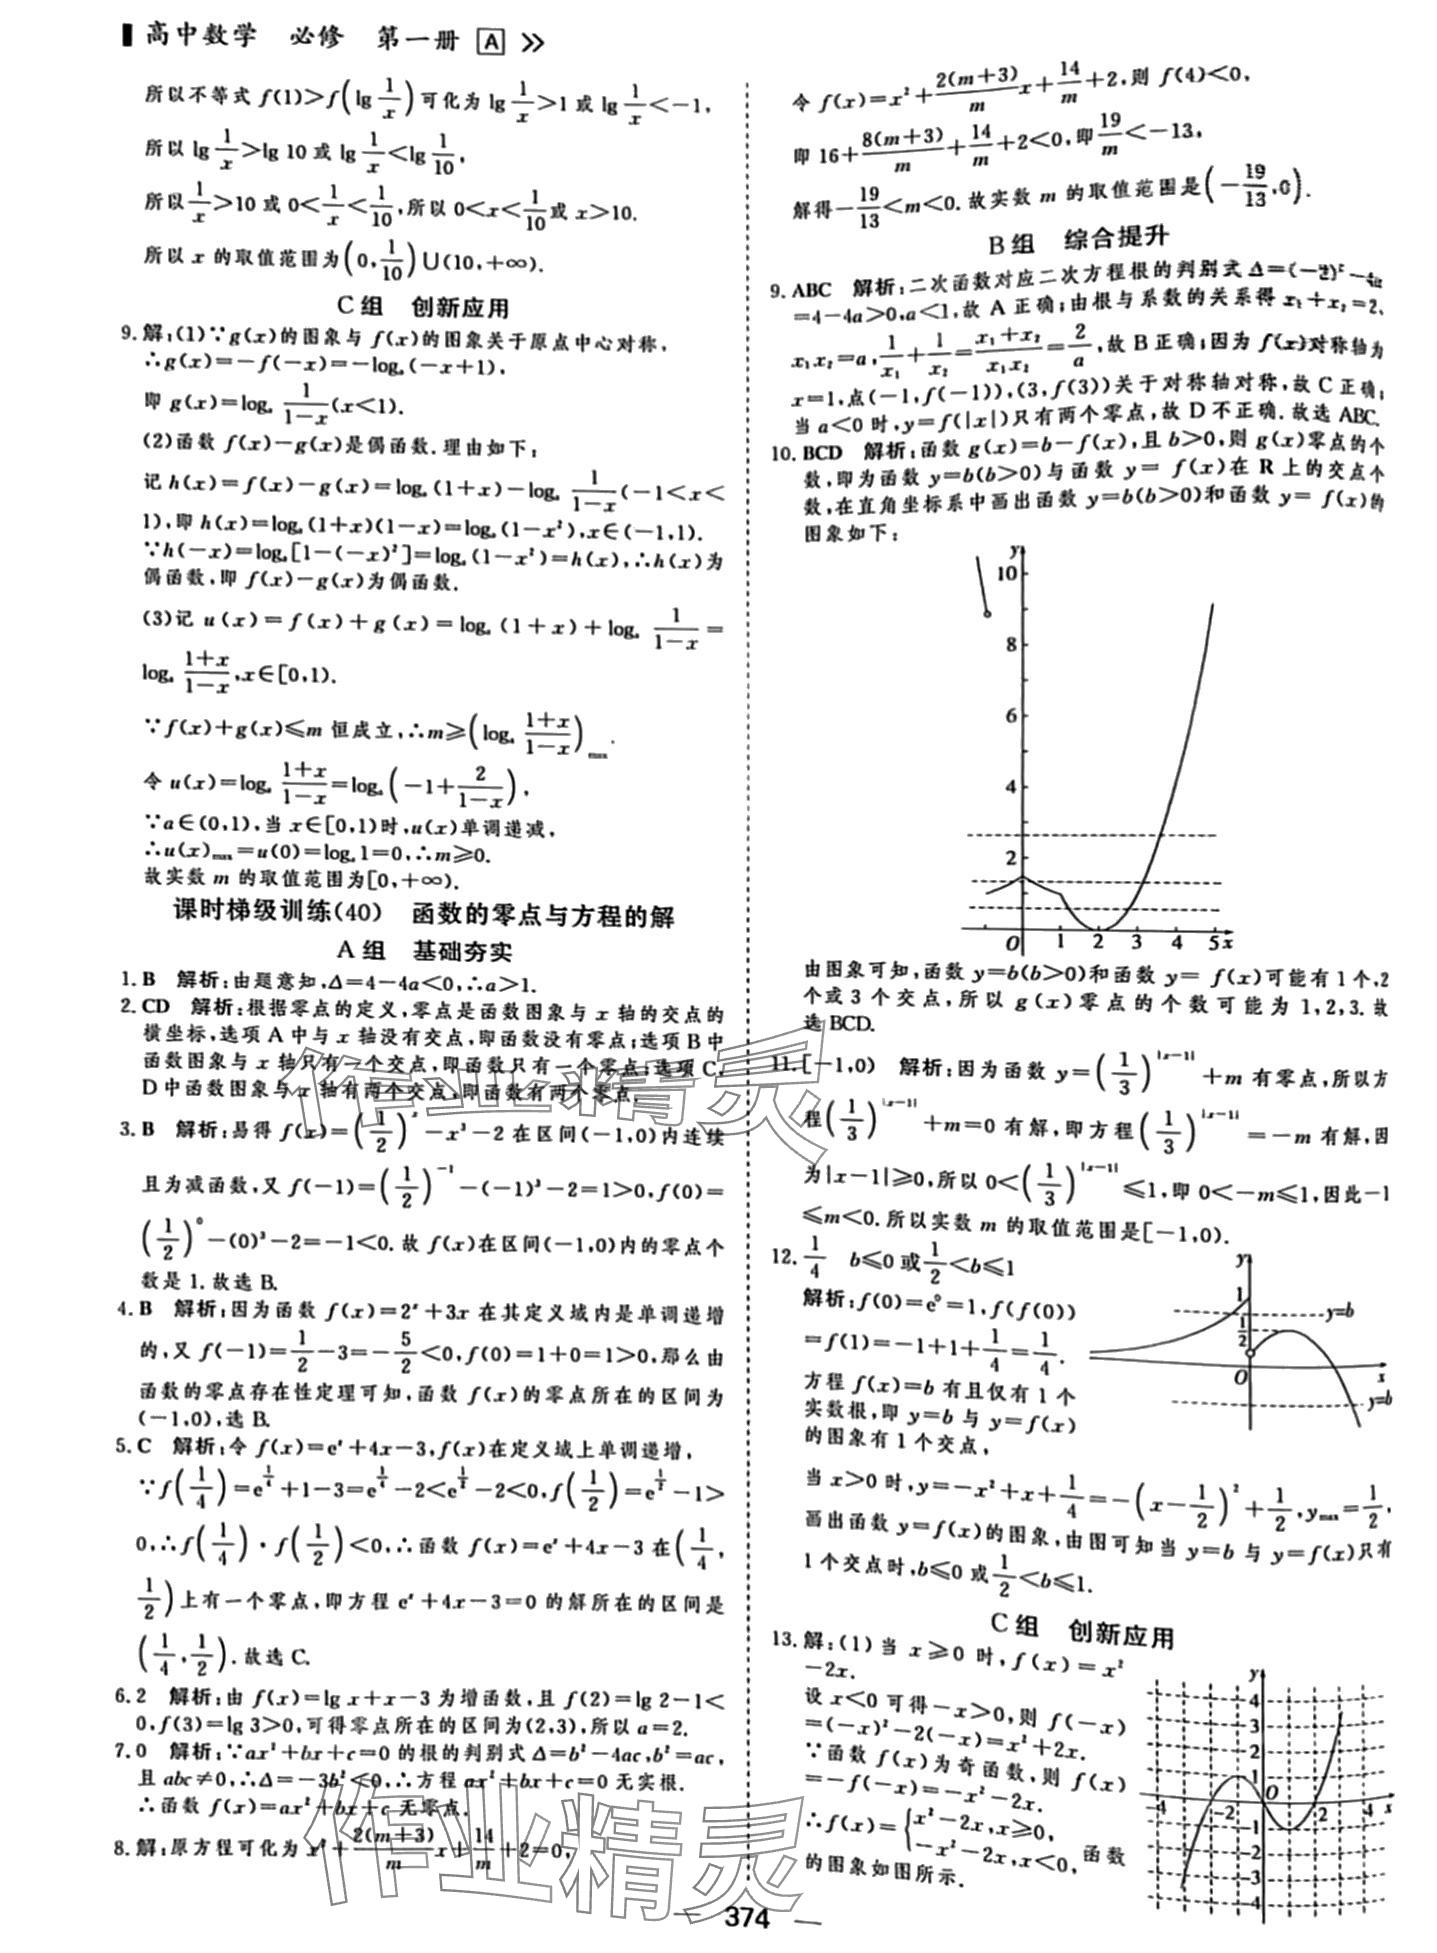 高中数学 必修 第一册 A
所以不等式 f(1)>f(lg 1/x)可化为 lg 1/x>1 或 lg 1/x<-1,
所以 lg 1/x>lg 10 或 lg 1/x<lg 1/10,
所以 1/x>10 或 0<1/x<1/10,所以 0<x<1/10或 x>10.
所以 x 的取值范围为(0,1/10)∪(10,+∞).
C 组 创新应用
9. 解:(1)∵g(x)的图象与 f(x)的图象关于原点中心对称,
∴g(x)=-f(-x)=-logₐ(-x+1),
即 g(x)=logₐ 1/(1-x)(x<1).
(2)函数 f(x)-g(x)是偶函数.理由如下:
记 h(x)=f(x)-g(x)=logₐ(1+x)-logₐ 1/(1-x)(-1<x<
1),即 h(x)=logₐ(1+x)(1-x)=logₐ(1-x²),x∈(-1,1).
∵h(-x)=logₐ[1-(-x)²]=logₐ(1-x²)=h(x),∴h(x)为
偶函数,即 f(x)-g(x)为偶函数.
(3)记 u(x)=f(x)+g(x)=logₐ(1+x)+logₐ 1/(1-x)=
logₐ (1+x)/(1-x),x∈[0,1).
∵f(x)+g(x)≤m 恒成立,∴m≥(logₐ (1+x)/(1-x))max.
令 u(x)=logₐ (1+x)/(1-x)=logₐ(-1+2/(1-x)),
∵a∈(0,1),当 x∈[0,1)时,u(x)单调递减,
∴u(x)max=u(0)=logₐ1=0,∴m≥0.
故实数 m 的取值范围为[0,+∞).
课时梯级训练(40) 函数的零点与方程的解
A 组 基础夯实
1. B 解析:由题意知,Δ=4-4a<0,∴a>1.
2. CD 解析:根据零点的定义,零点是函数图象与 x 轴的交点的
横坐标,选项 A 中与 x 轴没有交点,即函数没有零点;选项 B 中
函数图象与 x 轴只有一个交点,即函数只有一个零点;选项 C,
D 中函数图象与 x 轴有两个交点,即函数有两个零点.
3. B 解析:易得 f(x)=(1/2)ˣ-x³-2 在区间(-1,0)内连续
且为减函数,又 f(-1)=(1/2)⁻¹-(-1)³-2=1>0,f(0)=
(1/2)⁰-(0)³-2=-1<0.故 f(x)在区间(-1,0)内的零点个
数是 1.故选 B.
4. B 解析:因为函数 f(x)=2ˣ+3x 在其定义域内是单调递增
的,又 f(-1)=1/2-3=-5/2<0,f(0)=1+0=1>0,那么由
函数的零点存在性定理可知,函数 f(x)的零点所在的区间为
(-1,0),选 B.
5. C 解析:令 f(x)=eˣ+4x-3,f(x)在定义域上单调递增,
∵f(1/4)=e^(1/4)+1-3=e^(1/4)-2<e^(1/2)-2<0,f(1/2)=e^(1/2)-1>
0,∴f(1/4)·f(1/2)<0,∴函数 f(x)=eˣ+4x-3 在(1/4,
1/2)上有一个零点,即方程 eˣ+4x-3=0 的解所在的区间是
(1/4,1/2).故选 C.
6. 2 解析:由 f(x)=lg x+x-3 为增函数,且 f(2)=lg 2-1<
0,f(3)=lg 3>0,可得零点所在的区间为(2,3),所以 a=2.
7. 0 解析:∵ax²+bx+c=0 的根的判别式 Δ=b²-4ac,b²=ac,
且 abc≠0,∴Δ=-3b²<0,∴方程 ax²+bx+c=0 无实根.
∴函数 f(x)=ax²+bx+c 无零点.
8. 解:原方程可化为 x²+2(m+3)/m x+14/m+2=0,
令 f(x)=x²+2(m+3)/m x+14/m+2,则 f(4)<0,
即 16+8(m+3)/m+14/m+2<0,即 19/m<-13,
解得-19/13<m<0.故实数 m 的取值范围是(-19/13,0).
B 组 综合提升
9. ABC 解析:二次函数对应二次方程根的判别式 Δ=(-2)²-4a
=4-4a>0,a<1,故 A 正确;由根与系数的关系得 x₁+x₂=2,
x₁x₂=a,1/x₁+1/x₂=(x₁+x₂)/(x₁x₂)=2/a,故 B 正确;因为 f(x)对称轴为
x=1,点(-1,f(-1)),(3,f(3))关于对称轴对称,故 C 正确;
当 a<0 时,y=f(|x|)只有两个零点,故 D 不正确.故选 ABC.
10. BCD 解析:函数 g(x)=b-f(x),且 b>0,则 g(x)零点的个
数,即为函数 y=b(b>0)与函数 y= f(x)在 R 上的交点个
数,在直角坐标系中画出函数 y=b(b>0)和函数 y= f(x)的
图象如下:
y
10
8
6
4
2
O 1 2 3 4 5 x
由图象可知,函数 y=b(b>0)和函数 y= f(x)可能有 1 个,2
个或 3 个交点,所以 g(x)零点的个数可能为 1,2,3.故
选 BCD.
11. [-1,0) 解析:因为函数 y=(1/3)^|x-1|+m 有零点,所以方
程(1/3)^|x-1|+m=0 有解,即方程(1/3)^|x-1|=-m 有解,因
为|x-1|≥0,所以 0<(1/3)^|x-1|≤1,即 0<-m≤1,因此-1
≤m<0.所以实数 m 的取值范围是[-1,0).
12. 1/4 b≤0 或 1/2<b≤1
解析:f(0)=e⁰=1,f(f(0))
=f(1)=-1+1+1/4=1/4.
方程 f(x)=b 有且仅有 1 个
实数根,即 y=b 与 y=f(x)
的图象有 1 个交点,
y
1
y=b
1/2
O
x
y=b
当 x>0 时,y=-x²+x+1/4=-(x-1/2)²+1/2,ymax=1/2,
画出函数 y=f(x)的图象,由图可知当 y=b 与 y=f(x)只有
1 个交点时,b≤0 或 1/2<b≤1.
C 组 创新应用
13. 解:(1)当 x≥0 时,f(x)=x²
-2x.
设 x<0 可得-x>0,则 f(-x)
=(-x)²-2(-x)=x²+2x.
∵函数 f(x)为奇函数,则 f(x)
=-f(-x)=-x²-2x.
∴f(x)={x²-2x,x≥0, -x²-2x,x<0, 函数
的图象如图所示.
y
4
3
2
1
O
-4 -2 2 4 x
-1
-2
-3
-4
作业精灵
作业精灵
— 374 —